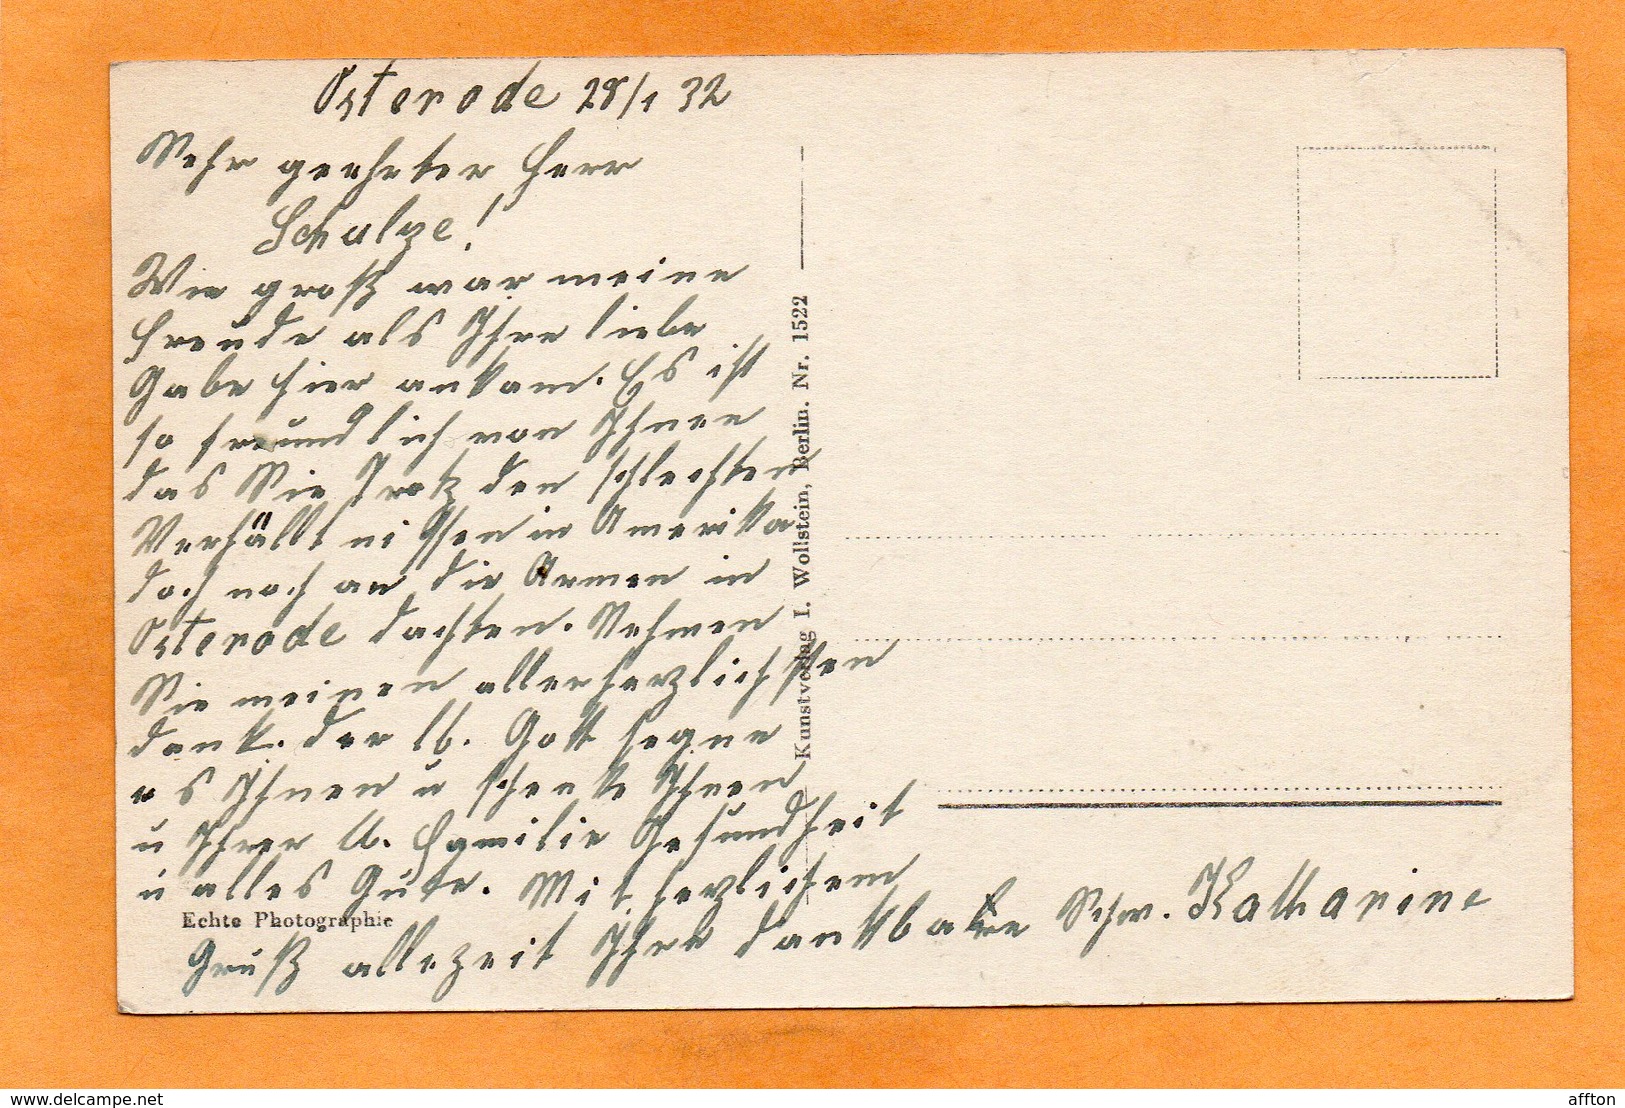 Osterode 28/1 32
Sehr geehrter Herr
Schulze!
Wie groß war meine
Freude als Ihre liebe
Gabe hier ankam. Es ist
so freundlich von Ihnen
das Sie Trotz den schlechten
Verhälltnissen in Amerika
doch noch an die Armen in
Osterode dachten. Nehmen
Sie meinen allerherzlichsten
dank. der lb. Gott segne
es Ihnen u schenke Ihnen
u Ihrer w. Familie Gesundheit
u alles Gute. Mit herzlichem
Gruß allezeit Ihre dankbare Schw. Katharine
Echte Photographie
Kunstverlag I. Wollstein, Berlin. Nr. 1522
affton